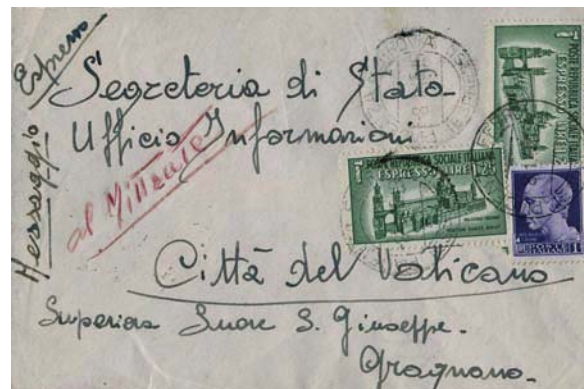 Espresso
Messaggio
Segreteria di Stato
Ufficio Informazioni
al Mittente
Città del Vaticano
Superiora Suore S. Giuseppe.
Gragnano.
POSTE REPUBBLICA SOCIALE ITALIANA
ESPRESSO LIRE 1,25
ESPRESSO LIRE 1,25
POSTE ITALIANE